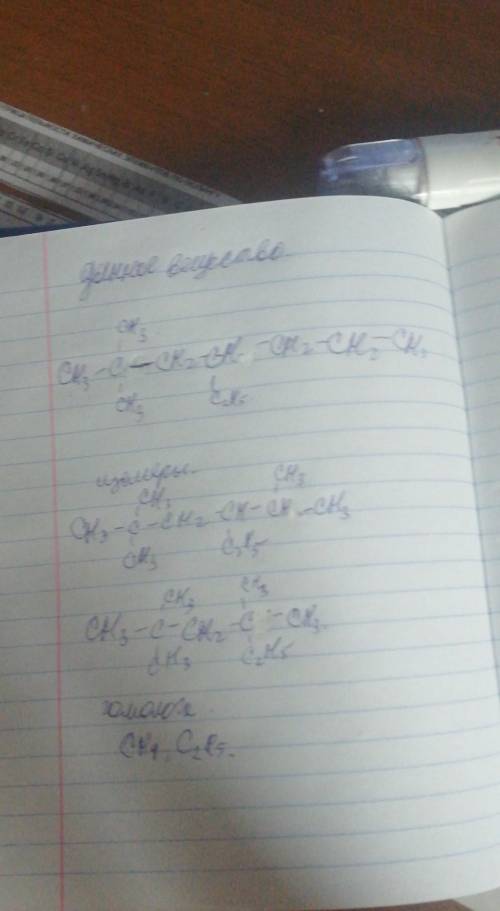 данное вещество
CH3
CH3-C-CH2-CH-CH2-CH2-CH3
CH3 C2H5
изомеры.
CH3 CH3
CH3-C-CH2-CH-CH-CH3
CH3 C2H5
CH3 CH3
CH3-C-CH2-C-CH3
CH3 C2H5
гомологи.
CH4, C2H5.